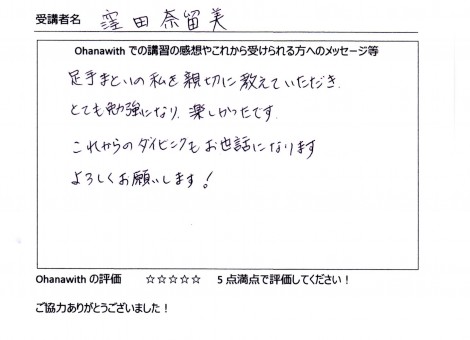 受講者名 窪田奈留美
Ohanawith での講習の感想やこれから受けられる方へのメッセージ等
足手まといの私を親切に教えていただき、
とても勉強になり、楽しかったです。
これからのダイビングもお世話になります
よろしくお願いします!
Ohanawith の評価 ☆☆☆☆☆ 5点満点で評価してください！
ご協力ありがとうございました！